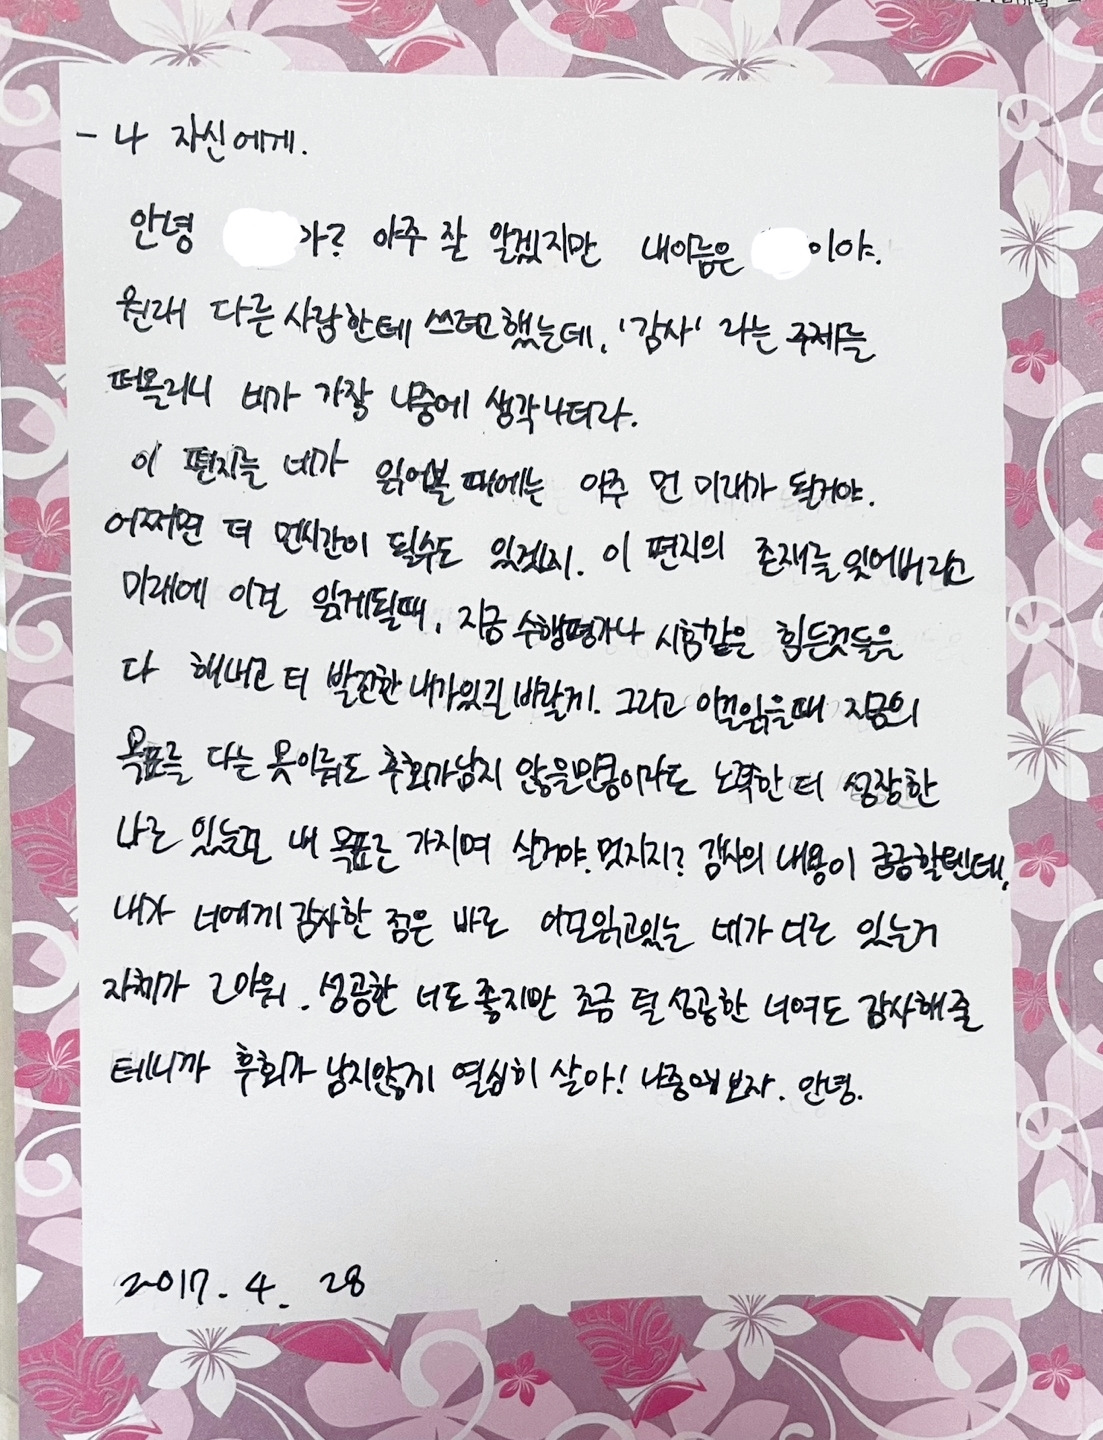 - 나 자신에게.
안녕 아? 아주 잘 알겠지만 내이름은 이야.
원래 다른 사람한테 쓰려고 했는데, '감사' 라는 주제를
떠올리니 네가 가장 나중에 생각나더라.
이 편지를 네가 읽어볼 때에는 아주 먼 미래가 될거야.
어쩌면 더 먼시간이 될수도 있겠지. 이 편지의 존재를 잊어버리고
미래에 이걸 읽게될때, 지금 수행평가나 시험같은 힘든것들을
다 해내고 더 발전한 내가있길 바랄게. 그리고 이걸읽을때 지금의
목표를 다는 못이뤄도 후회가남지 않을만큼이라도 노력한 더 성장한
나로 있는 내 목표를 가지며 살거야. 멋지지? 감사의 내용이 궁금할텐데,
내가 너에게 감사한 점은 바로 읽고있는 네가 너로 있는거
자체가 고마워. 성공한 너도 좋지만 조금 덜 성공한 너여도 감사해줄
테니까 후회가 남지않게 열심히 살아! 나중에 보자. 안녕.
2017. 4. 28